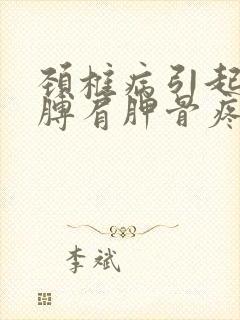 颈椎病引起
膊肩胛骨疼
李斌